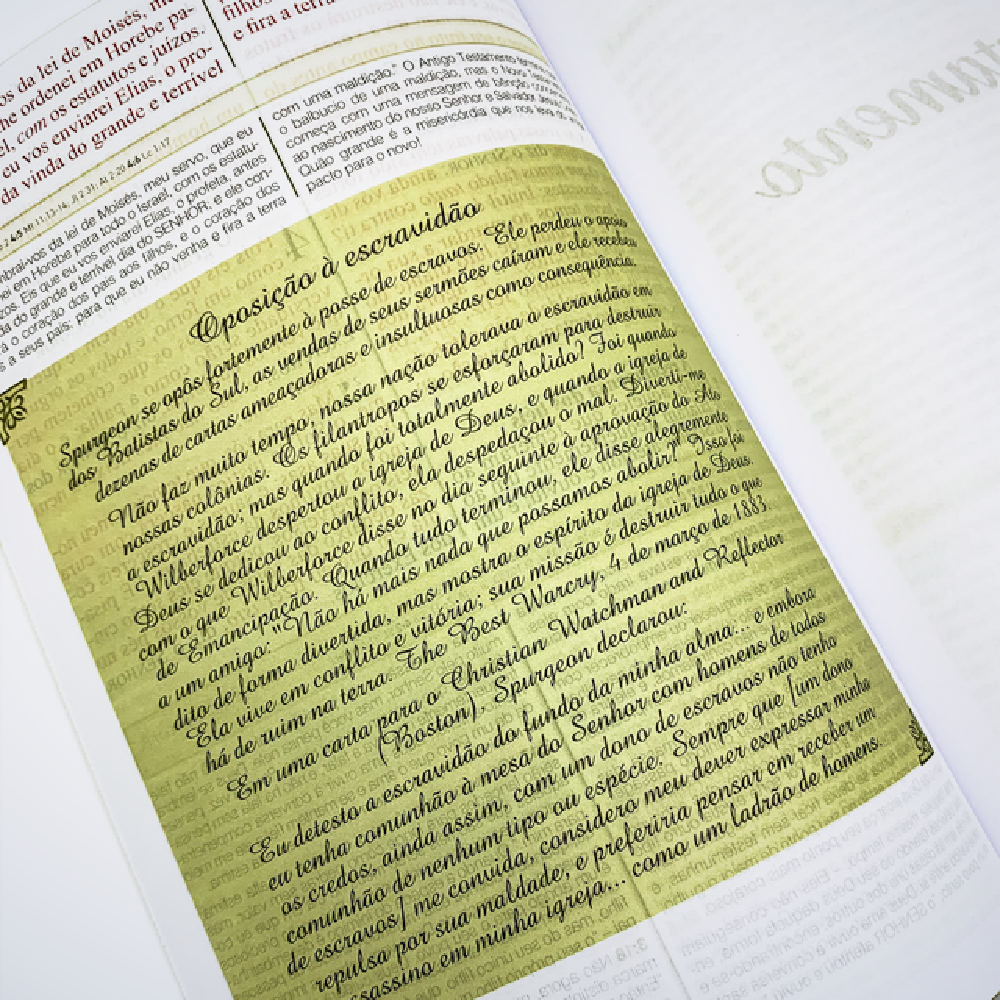 os da lei de Moisés,
he ordenei em Horebe pa-
el, com os estatutos e juízos.
eu vos enviarei Elias, o pro-
da vinda do grande e terrível
filhos
e fira a terra
mbrai-vos da lei de Moisés, meu servo, que eu
ei em Horebe para todo o Israel, com os estatu-
zos. Eis que eu vos enviarei Elias, o profeta, antes
da do grande e terrível dia do SENHOR; e ele con-
á o coração dos pais aos filhos, e o coração dos
s a seus pais; para que eu não venha e fira a terra
com uma maldição." O Antigo Testamento
o balbucio de uma maldição, mas o Novo
começa com uma mensagem de bênção
ao nascimento do nosso Senhor e Salvador,
Quão grande é a misericórdia que nos leva do
pacto para o novo!
Oposição à escravidão
Spurgeon se opôs fortemente à posse de escravos. Ele perdeu o apoio
dos Batistas do Sul, as vendas de seus sermões caíram e ele recebeu
dezenas de cartas ameaçadoras e insultuosas como consequência.
Não faz muito tempo, nossa nação tolerava a escravidão em
nossas colônias. Os filantropos se esforçaram para destruir
a escravidão; mas quando foi totalmente abolido? Foi quando
Wilberforce despertou a igreja de Deus, e quando a igreja de
Deus se dedicou ao conflito, ela despedaçou o mal. Diverti-me
com o que Wilberforce disse no dia seguinte à aprovação do Ato
de Emancipação. Quando tudo terminou, ele disse alegremente
a um amigo: "Não há mais nada que possamos abolir?" Isso foi
dito de forma divertida, mas mostra o espírito da igreja de Deus.
Ela vive em conflito e vitória; sua missão é destruir tudo o que
há de ruim na terra. The Best Warcry, 4 de março de 1883.
Em uma carta para o Christian Watchman and Reflector
(Boston), Spurgeon declarou:
Eu detesto a escravidão do fundo da minha alma... e embora
eu tenha comunhão à mesa do Senhor com homens de todos
os credos, ainda assim, com um dono de escravos não tenho
comunhão de nenhum tipo ou espécie. Sempre que [um dono
de escravos] me convida, considero meu dever expressar minha
repulsa por sua maldade, e preferiria pensar em receber um
assassino em minha igreja... como um ladrão de homens.